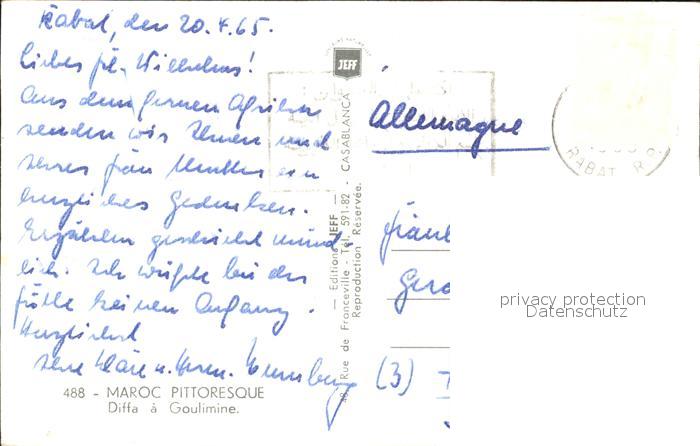 Rabat, den 20.4.65.
Liebes frl. Willelms!
Aus dem fernen Afrika
senden wir Ihnen und
Ihrer frau Mutter ein
herzliches Gedenken.
Erzählen geschieht münd-
lich. Ich wüßte bei der
fülle keinen Anfang.
Herzlichst
Ihre Kläre u. Herm.
488 - MAROC PITTORESQUE
Diffa à Goulimine.
JEFF
— Editions JEFF —
48, Rue de Franceville - Tél. 591-82 - CASABLANCA
Reproduction Réservée.
Allemagne
RABAT R.P.
(3)
privacy protection
Datenschutz